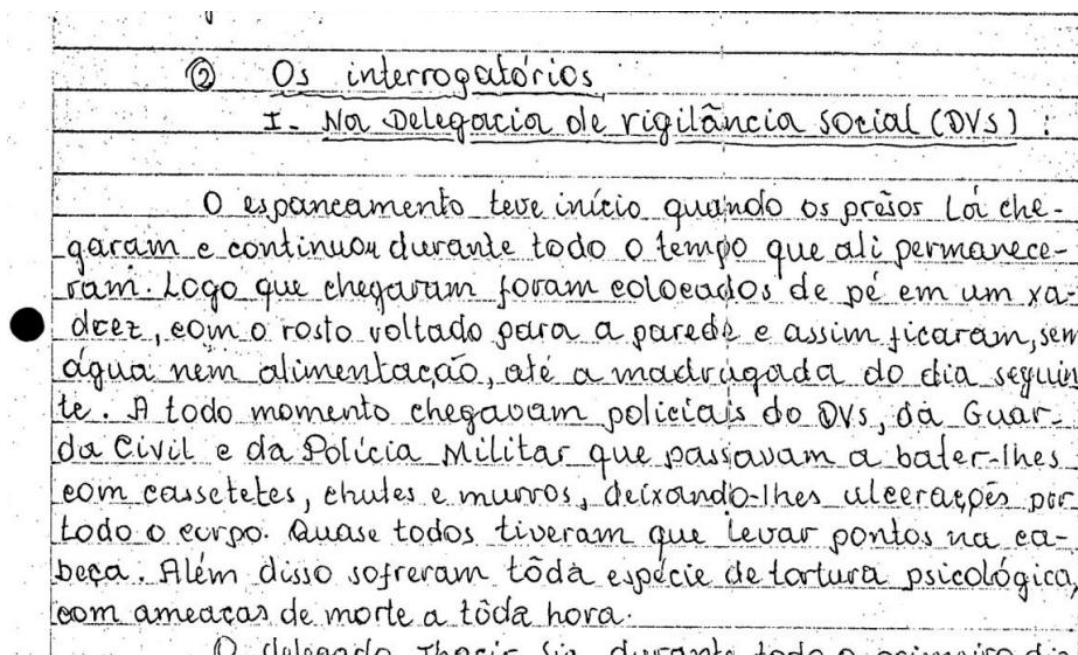 ② Os interrogatórios
I - Na Delegacia de vigilância social (DVS) :
O espancamento teve início quando os prêsos Lá che-
garam e continuou durante todo o tempo que ali permanece-
ram. Logo que chegaram foram colocados de pé em um xa-
drez, com o rosto voltado para a parede e assim ficaram, sem
água nem alimentação, até a madrugada do dia seguin
te. A todo momento chegavam policiais do DVS, da Guar-
da Civil e da Polícia Militar que passavam a bater-lhes
com cassetetes, chutes e murros, deixando-lhes ulcerações por
todo o corpo. Quase todos tiveram que levar pontos na ca-
beça. Além disso sofreram tôda espécie de tortura psicológica,
com ameaças de morte a tôda hora.
O delegado durante todo o primeiro